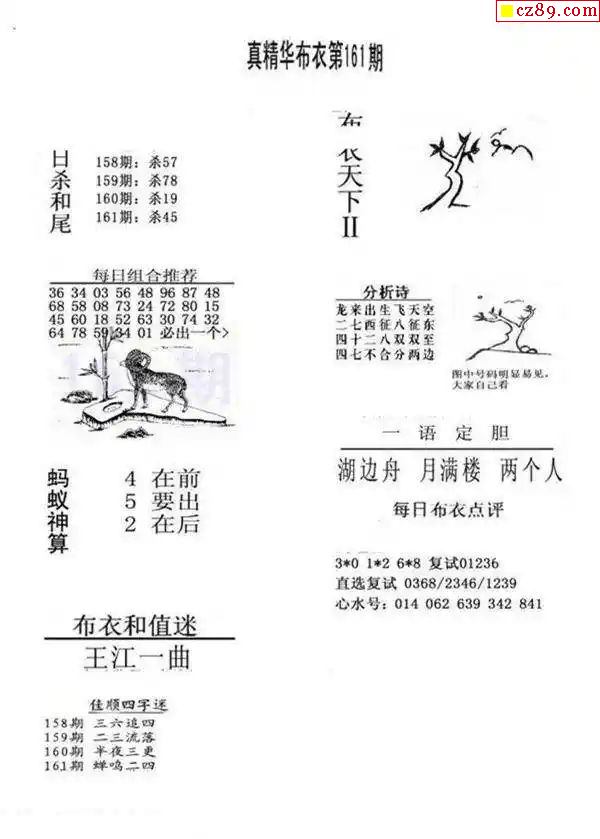 cz89.com
真精华布衣第161期
日杀和尾
158期：杀57
159期：杀78
160期：杀19
161期：杀45
布衣天下II
每日组合推荐
36 34 03 56 48 96 87 48
68 58 08 73 24 72 80 15
45 60 18 52 63 30 74 32
64 78 59 34 01 必出一个>
分析诗
龙来出生飞天空
二七西征八征东
四十二八双双至
四七不合分两边
图中号码明显易见。
大家自己看
蚂蚁神算
4 在前
5 要出
2 在后
一语定胆
湖边舟 月满楼 两个人
每日布衣点评
3*0 1*2 6*8 复试01236
直选复试 0368/2346/1239
心水号：014 062 639 342 841
布衣和值迷
王江一曲
佳顺四字迷
158期 三六追四
159期 二三流落
160期 半夜三更
161期 蝉鸣二四